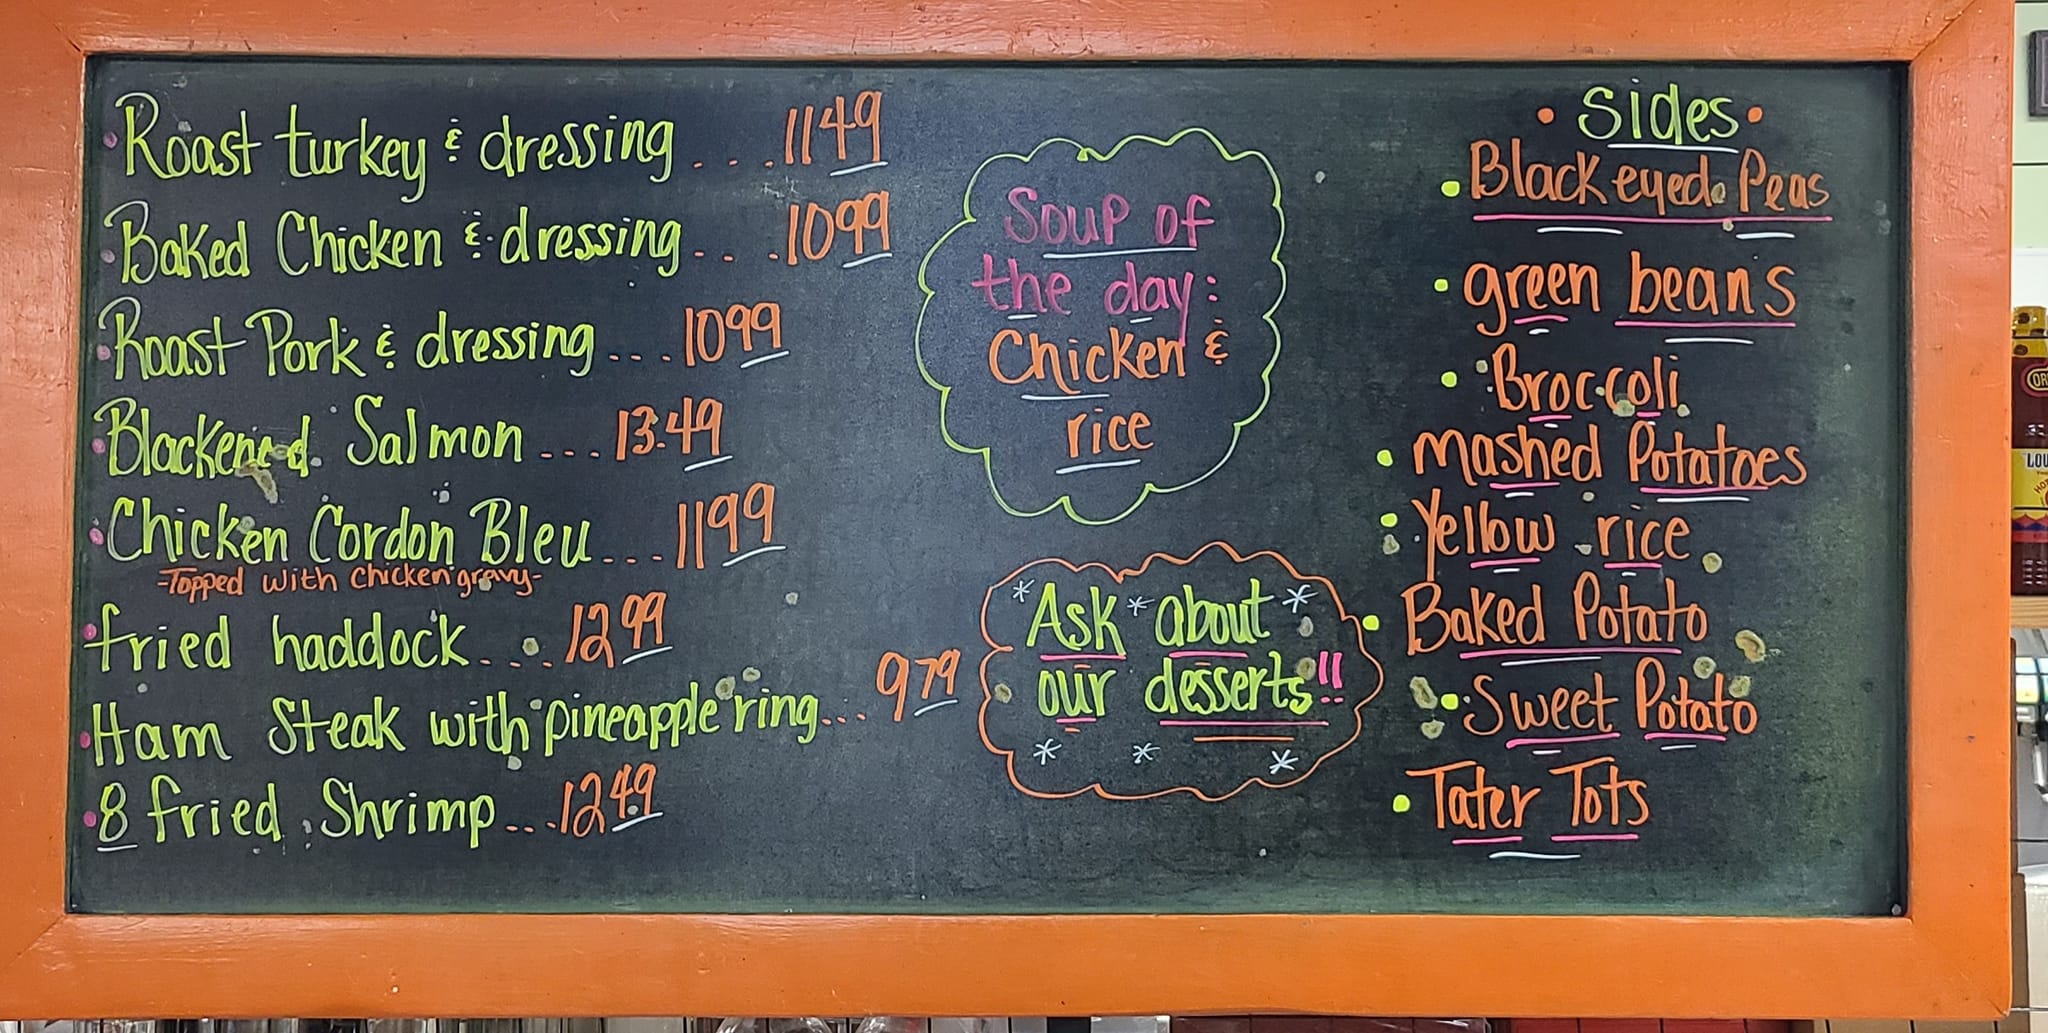 Roast turkey & dressing . . . 1149
Baked Chicken & dressing . . . . 1099
Roast Pork & dressing . . . 1099
Blackened Salmon . . . 13.49
Chicken Cordon Bleu . . . 1199
-Topped with chicken gravy-
fried haddock . . . . 1299
Ham Steak with pineapple ring . . . 979
8 fried Shrimp . . . 1249
Soup of
the day:
Chicken &
rice
*Ask * about *
our desserts!!
* * *
• Sides •
• Blackeyed Peas
• green beans
• Broccoli
• mashed Potatoes
• Yellow rice
• Baked Potato
• Sweet Potato
• Tater Tots
LOU